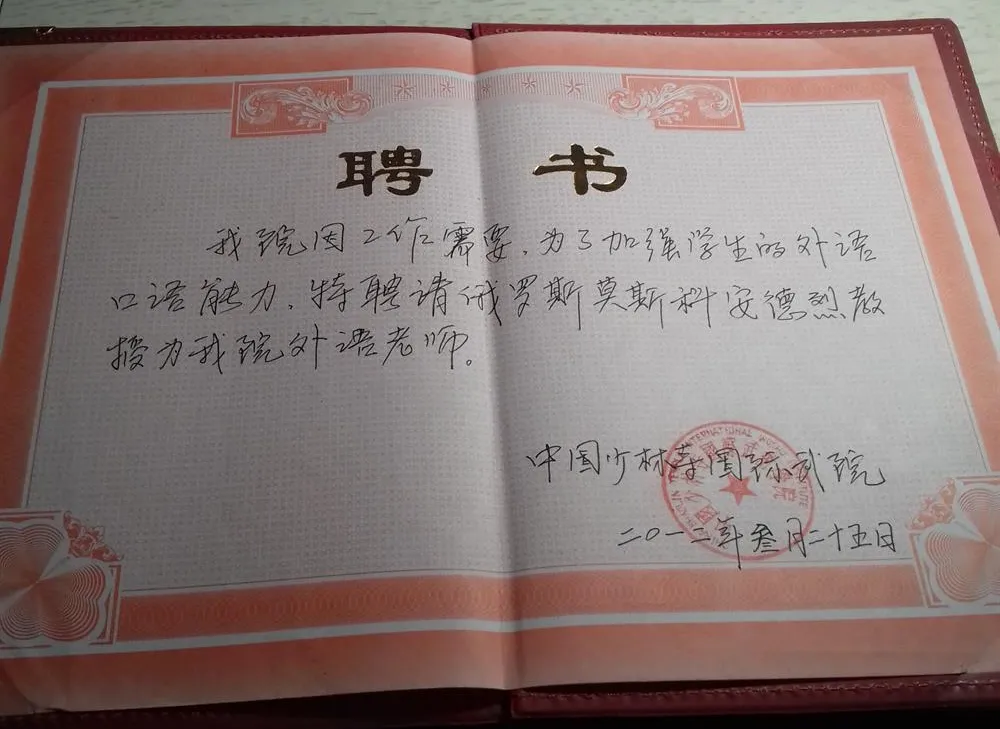 聘书
我院因工作需要，为了加强学生的外语
口语能力，特聘请俄罗斯莫斯科安德烈教
授为我院外语老师。
中国少林寺国际武院
二〇一二年叁月二十五日
INTERNATIONAL